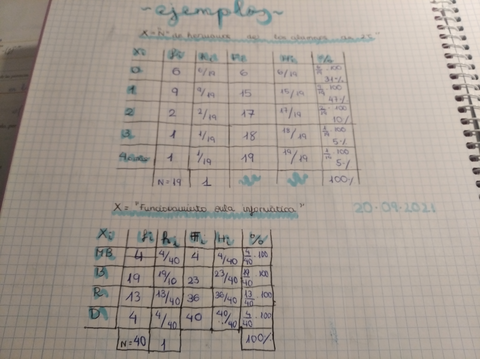 ~ejemplos~
X = "nº de hermanos de los alumnos
0 6 6/19 6 6/19 6/19 · 100 31%
1 9 9/19 15 15/19 9/19 · 100 47%
2 2 2/19 17 17/19 2/19 · 100 10%
3 1 1/19 18 18/19 1/19 · 100 5%
1 1/19 19 19/19 1/19 · 100 5%
N=19 1 100%
X = "Funcionamiento aula informática"
20·09·2021
MB 4 4/40 4 4/40 4/40 · 100
B 19 19/10 23 23/40 19/40 · 100
R 13 13/40 36 36/40 13/40 · 100
D 4 4/40 40 40/40 4/40 · 100
N=40 1 100%